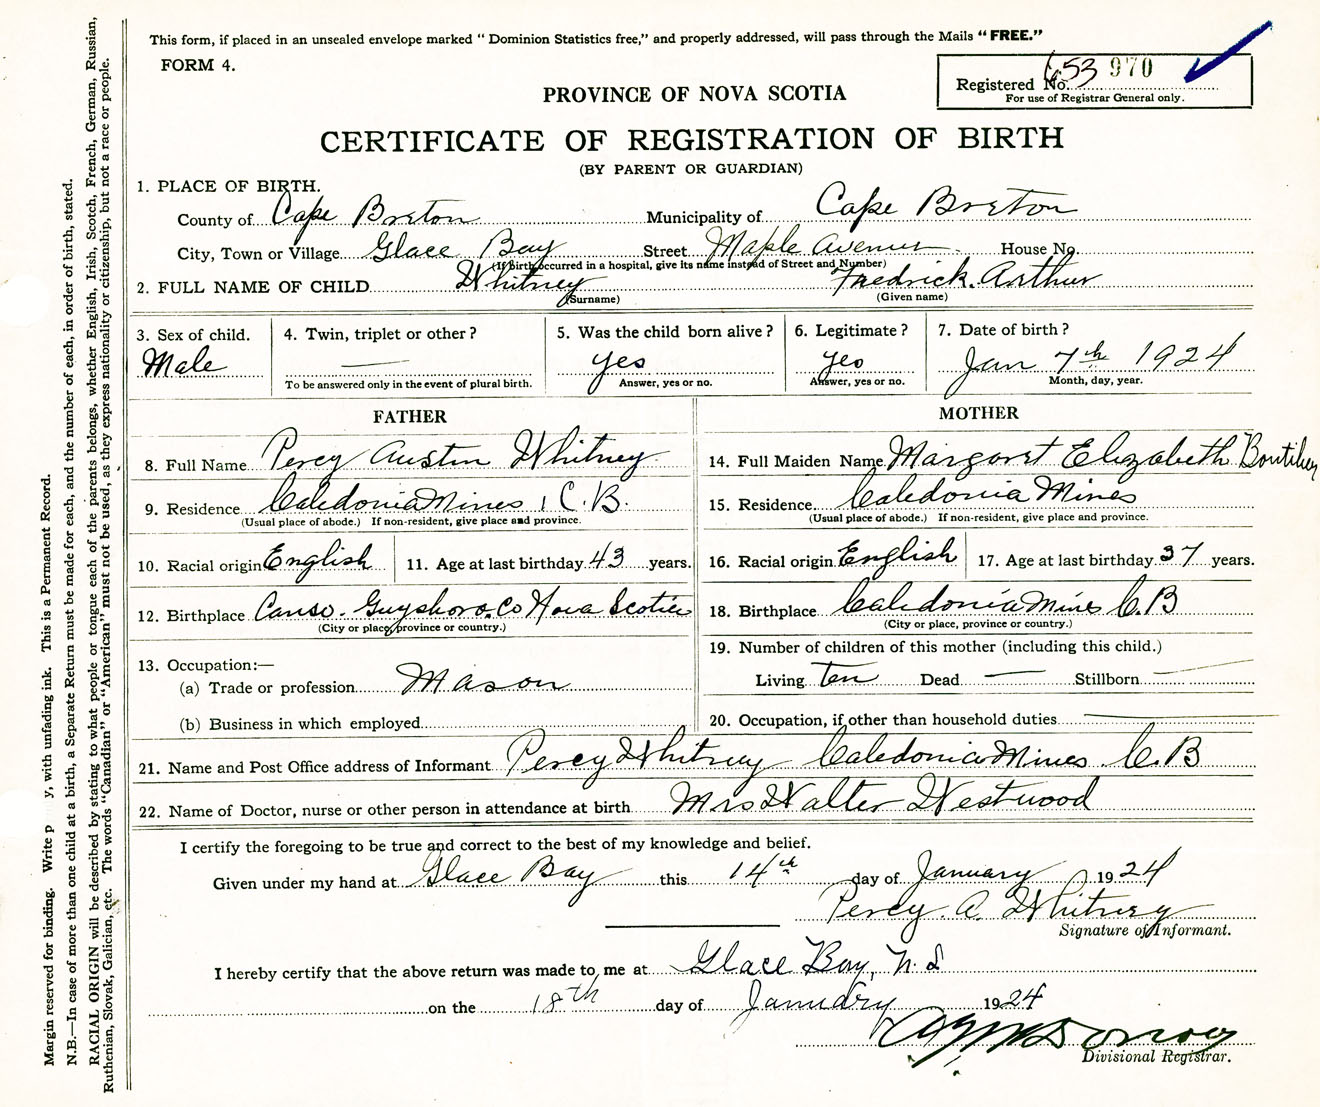 This form, if placed in an unsealed envelope marked " Dominion Statistics free," and properly addressed, will pass through the Mails " FREE."
FORM 4.
Registered No. 653 970
For use of Registrar General only.
PROVINCE OF NOVA SCOTIA
CERTIFICATE OF REGISTRATION OF BIRTH
(BY PARENT OR GUARDIAN)
1. PLACE OF BIRTH.
County of Cape Breton Municipality of Cape Breton
City, Town or Village Glace Bay Street Maple Avenue House No.
(If birth occurred in a hospital, give its name instead of Street and Number)
2. FULL NAME OF CHILD Whitney Fredrick Arthur
(Surname) (Given name)
3. Sex of child. 4. Twin, triplet or other ? 5. Was the child born alive ? 6. Legitimate ? 7. Date of birth ?
Male — yes yes Jan 7th 1924
To be answered only in the event of plural birth. Answer, yes or no. Answer, yes or no. Month, day, year.
FATHER MOTHER
8. Full Name Percy Austin Whitney 14. Full Maiden Name Margaret Elizabeth Boutilier
9. Residence Caledonia Mines, C.B. 15. Residence Caledonia Mines
(Usual place of abode.) If non-resident, give place and province. (Usual place of abode.) If non-resident, give place and province.
10. Racial origin English 11. Age at last birthday 43 years. 16. Racial origin English 17. Age at last birthday 37 years.
12. Birthplace Canso. Guysboro. Co Nova Scotia 18. Birthplace Caledonia Mines C.B
(City or place, province or country.) (City or place, province or country.)
19. Number of children of this mother (including this child.)
13. Occupation:—
(a) Trade or profession Mason Living ten Dead — Stillborn —
(b) Business in which employed 20. Occupation, if other than household duties —
21. Name and Post Office address of Informant Percy Whitney Caledonia Mines C.B
22. Name of Doctor, nurse or other person in attendance at birth Mrs Walter Westwood
I certify the foregoing to be true and correct to the best of my knowledge and belief.
Given under my hand at Glace Bay this 14th day of January 1924
Percy. A. Whitney
Signature of Informant.
I hereby certify that the above return was made to me at Glace Bay, N.S
on the 18th day of January 1924
Divisional Registrar.
Margin reserved for binding. Write p y, with unfading ink. This is a Permanent Record.
N.B.—In case of more than one child at a birth, a Separate Return must be made for each, and the number of each, in order of birth, stated.
RACIAL ORIGIN will be described by stating to what people or tongue each of the parents belongs, whether English, Irish, Scotch, French, German, Russian,
Ruthenian, Slovak, Galician, etc. The words "Canadian" or "American" must not be used, as they express nationality or citizenship, but not a race or people.